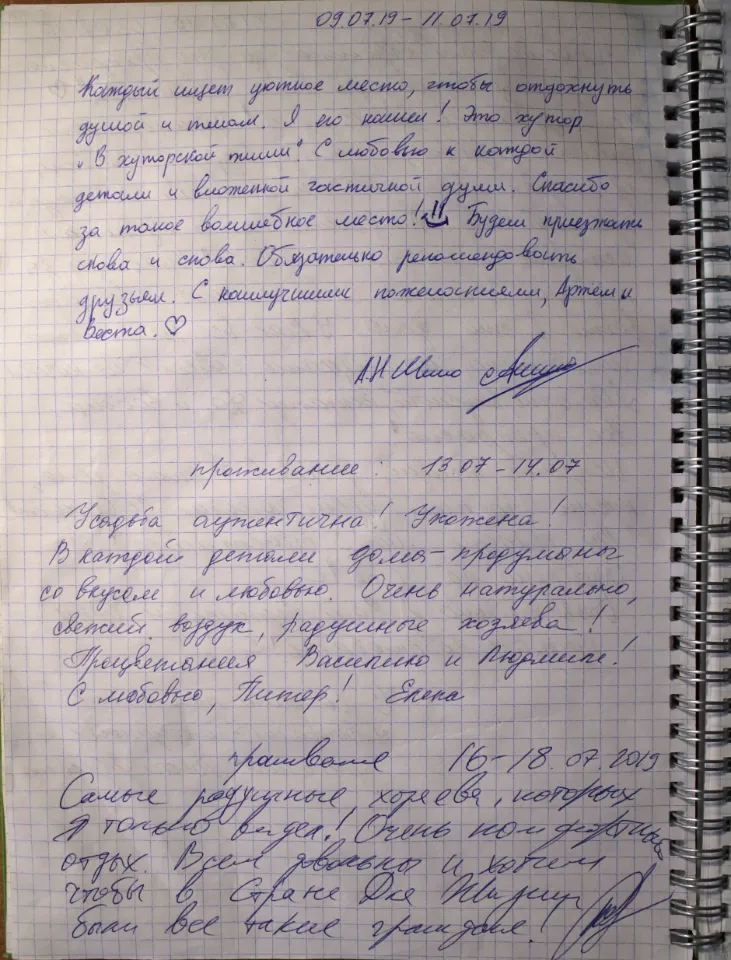 09.07.19 - 11.07.19
Каждый ищет уютное место, чтобы отдохнуть
душой и телом. Я его нашел! Это хутор
"В хуторской тиши". С любовью к каждой
детали и вложенной частичкой души. Спасибо
за такое волшебное место! Будем приезжать
снова и снова. Обязательно рекомендовать
друзьям. С наилучшими пожеланиями, Артем и
Веста. ♡
А.Н
проживание: 13.07 - 14.07
Усадьба аутентична! Ухожена!
В каждой детали дома - продуманы
со вкусом и любовью. Очень натурально,
свежий воздух, радушные хозяева!
Процветания Василию и Людмиле!
С любовью, Питер! Елена
16-18.07.2019
Самые радушные хозяева, которых
я только видел! Очень комфортный
отдых. Всем довольны и хотим
чтобы в Стране Для Жизни
были все такие граждане!